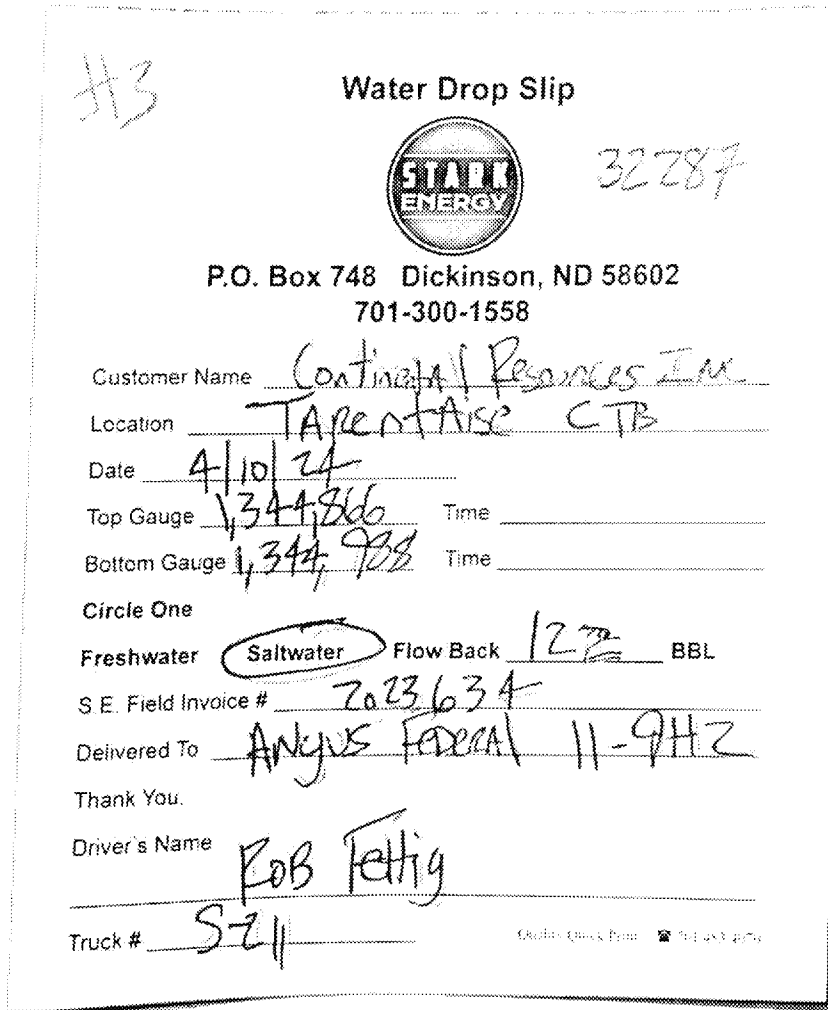 #3
Water Drop Slip
32287
STARK
ENERGY
P.O. Box 748 Dickinson, ND 58602
701-300-1558
Customer Name Continetal Resources Inc
Location TArentAise CTB
Date 4/10/24
Top Gauge 1,344,866 Time
Bottom Gauge 1,344,988 Time
Circle One
Freshwater Saltwater Flow Back 122 BBL
S.E. Field Invoice # 2023634
Delivered To ANgus FeDerAl 11-9H2
Thank You.
Driver's Name RoB Fettig
Truck # S-211
Quality Quick Print ☎ 701-483-